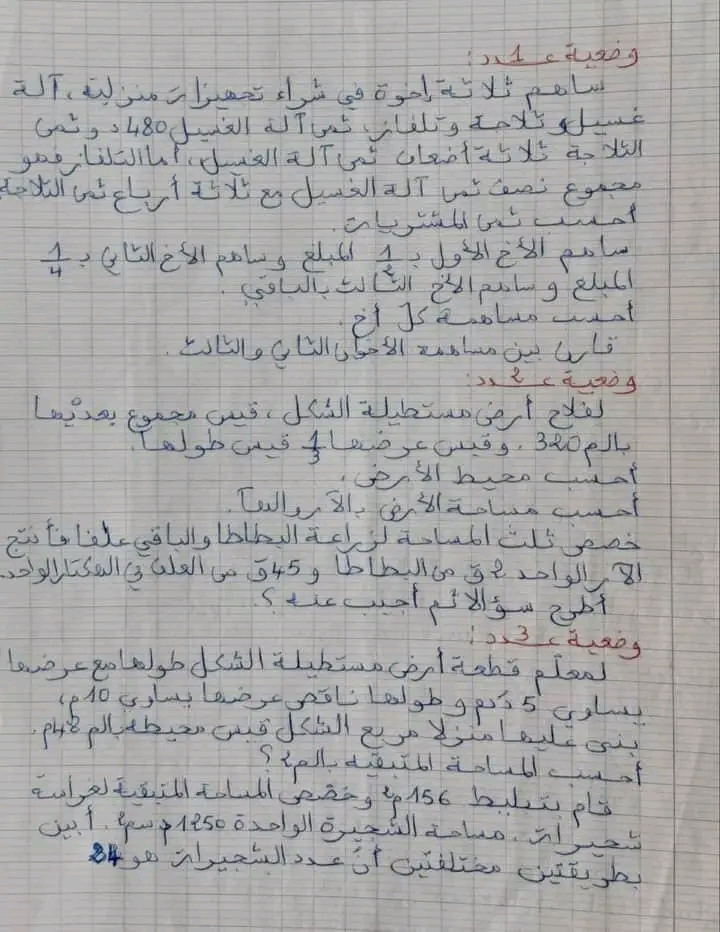 وضعية عـ1ـدد:
ساهم ثلاثة إخوة في شراء تجهيزات منزلية، آلة
غسيل و ثلاجة و تلفاز، ثمن آلة الغسيل 480د و ثمن
الثلاجة ثلاثة أضعاف ثمن آلة الغسيل، أما التلفاز فهو
مجموع نصف ثمن آلة الغسيل مع ثلاثة أرباع ثمن الثلاجة
أحسب ثمن المشتريات.
ساهم الأخ الأول بـ 1/2 المبلغ و ساهم الأخ الثاني بـ 1/4
المبلغ و ساهم الأخ الثالث بالباقي.
أحسب مساهمة كل أخ.
قارن بين مساهمة الأخوان الثاني والثالث.
وضعية عـ2ـدد:
لفلاح أرض مستطيلة الشكل، قيس مجموع بعديها
بالم 320. وقيس عرضها 1/3 قيس طولها.
أحسب محيط الأرض.
أحسب مساحة الأرض بالآر والصآ.
خصص ثلث المساحة لزراعة البطاطا والباقي علفا فأنتج
الآر الواحد 2ق من البطاطا و 45ق من العلف في الهكتار الواحد.
أطرح سؤالا ثم أجيب عنه؟
وضعية عـ3ـدد:
لمعلم قطعة أرض مستطيلة الشكل طولها مع عرضها
يساوي 5 دكم و طولها ناقص عرضها يساوي 10م،
بنى عليها منزلا مربع الشكل قيس محيطه بالم 48م.
أحسب المساحة المتبقية بالم2؟
قام بتبليط 156م2 وخصص المساحة المتبقية لغراسة
شجيرات. مساحة الشجيرة الواحدة 1250 سم2. أبين
بطريقتين مختلفتين أن عدد الشجيرات هو